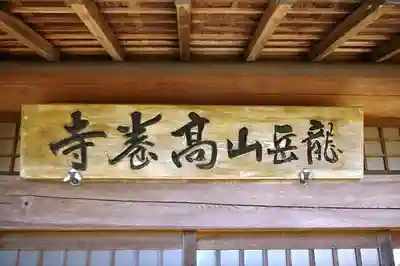 龍岳山髙巻寺